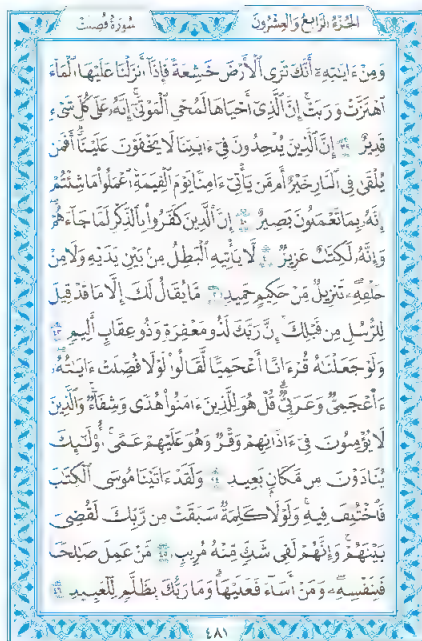 الجزء الرابع والعشرون سورة فصلت
وَمِنْ ءَايَٰتِهِۦٓ أَنَّكَ تَرَى ٱلْأَرْضَ خَٰشِعَةً فَإِذَآ أَنزَلْنَا عَلَيْهَا ٱلْمَآءَ
ٱهْتَزَّتْ وَرَبَتْ إِنَّ ٱلَّذِىٓ أَحْيَاهَا لَمُحْىِ ٱلْمَوْتَىٰٓ إِنَّهُۥ عَلَىٰ كُلِّ شَىْءٍ
قَدِيرٌ ٣٩ إِنَّ ٱلَّذِينَ يُلْحِدُونَ فِىٓ ءَايَٰتِنَا لَا يَخْفَوْنَ عَلَيْنَآ أَفَمَن
يُلْقَىٰ فِى ٱلنَّارِ خَيْرٌ أَم مَّن يَأْتِىٓ ءَامِنًا يَوْمَ ٱلْقِيَٰمَةِ ٱعْمَلُوا۟ مَا شِئْتُمْ
إِنَّهُۥ بِمَا تَعْمَلُونَ بَصِيرٌ ٤٠ إِنَّ ٱلَّذِينَ كَفَرُوا۟ بِٱلذِّكْرِ لَمَّا جَآءَهُمْ
وَإِنَّهُۥ لَكِتَٰبٌ عَزِيزٌ ٤١ لَّا يَأْتِيهِ ٱلْبَٰطِلُ مِنۢ بَيْنِ يَدَيْهِ وَلَا مِنْ
خَلْفِهِۦ تَنزِيلٌ مِّنْ حَكِيمٍ حَمِيدٍ ٤٢ مَّا يُقَالُ لَكَ إِلَّا مَا قَدْ قِيلَ
لِلرُّسُلِ مِن قَبْلِكَ إِنَّ رَبَّكَ لَذُو مَغْفِرَةٍ وَذُو عِقَابٍ أَلِيمٍ ٤٣
وَلَوْ جَعَلْنَٰهُ قُرْءَانًا أَعْجَمِيًّا لَّقَالُوا۟ لَوْلَا فُصِّلَتْ ءَايَٰتُهُۥٓ
ءَا۬عْجَمِىٌّ وَعَرَبِىٌّ قُلْ هُوَ لِلَّذِينَ ءَامَنُوا۟ هُدًى وَشِفَآءٌ وَٱلَّذِينَ
لَا يُؤْمِنُونَ فِىٓ ءَاذَانِهِمْ وَقْرٌ وَهُوَ عَلَيْهِمْ عَمًى أُو۟لَٰٓئِكَ
يُنَادَوْنَ مِن مَّكَانٍۭ بَعِيدٍ ٤٤ وَلَقَدْ ءَاتَيْنَا مُوسَى ٱلْكِتَٰبَ
فَٱخْتُلِفَ فِيهِ وَلَوْلَا كَلِمَةٌ سَبَقَتْ مِن رَّبِّكَ لَقُضِىَ
بَيْنَهُمْ وَإِنَّهُمْ لَفِى شَكٍّ مِّنْهُ مُرِيبٍ ٤٥ مَّنْ عَمِلَ صَٰلِحًا
فَلِنَفْسِهِۦ وَمَنْ أَسَآءَ فَعَلَيْهَا وَمَا رَبُّكَ بِظَلَّٰمٍ لِّلْعَبِيدِ ٤٦
٤٨١